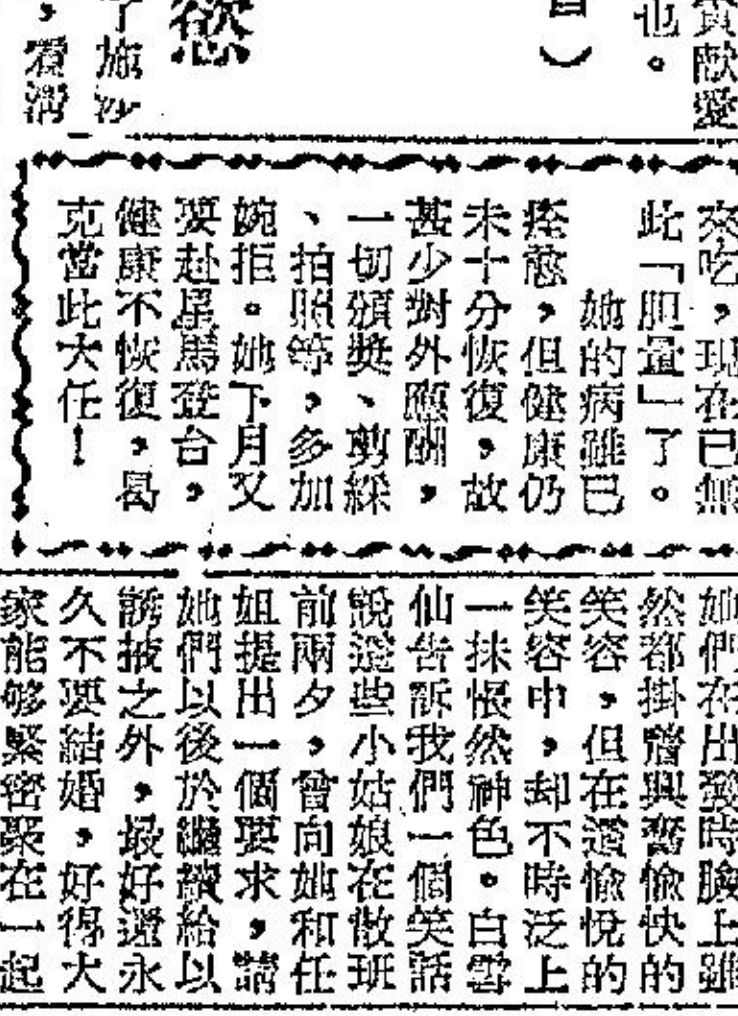 貢献愛
也。
）
慾
了施沙
，看湾
來吃，現在已無
此「胆量」了。
她的病雖已
痊癒，但健康仍
未十分恢復，故
甚少對外應酬，
一切頒獎、剪綵
、拍照等，多加
婉拒。她下月又
要赴星馬登台，
健康不恢復，曷
克當此大任！
她們在出發時臉上雖
然都掛着興奮愉快的
笑容，但在這愉悅的
笑容中，却不時泛上
一抹悵然神色。白雲
仙告訴我們一個笑話
說這些小姑娘在散班
前兩夕，曾向她和任
姐提出一個要求，請
她們以後於繼續給以
誘掖之外，最好還永
久不要結婚，好得大
家能够緊密聚在一起